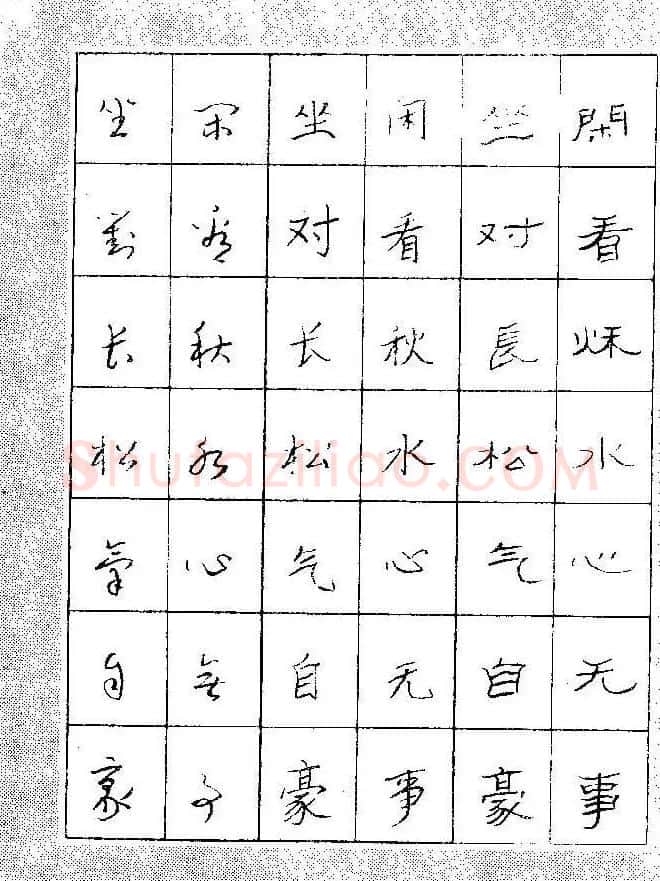 閑看秌水心无事
坐对長松气自豪
闲看秋水心无事
坐对长松气自豪
闲看秋水心無事
坐對长松氣自豪
Shufaziliao.COM